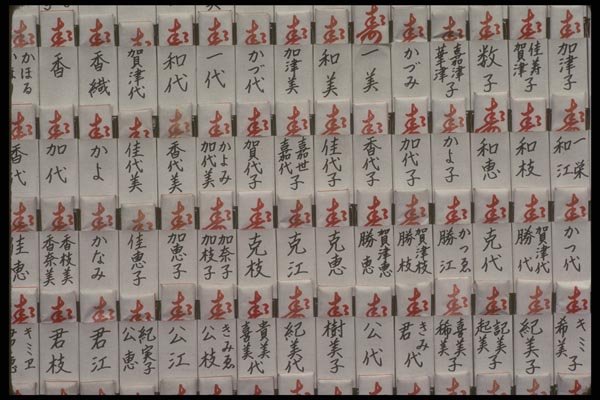 寿
加津子
寿
佳寿子
賀津子
寿
数子
寿
嘉津子
華津子
寿
かづみ
寿
一美
寿
和美
寿
加津美
寿
かづ代
寿
一代
寿
和代
寿
賀津代
寿
香織
寿
香
かほる
寿
一栄
和江
寿
和枝
寿
和恵
寿
かよ子
寿
加代子
寿
香代子
寿
佳代子
寿
嘉世子
嘉代
寿
賀代子
寿
かよみ
加代美
寿
香代美
寿
佳代美
寿
かよ
寿
加代
寿
香代
寿
かつ代
寿
賀津代
勝代
寿
克代
寿
かつゑ
勝江
寿
賀津枝
勝枝
寿
賀津恵
勝恵
寿
克恵
寿
克江
寿
克枝
寿
加奈子
加枝子
寿
加恵子
寿
佳恵子
寿
かなみ
寿
香枝美
香奈美
寿
佳恵
寿
キミ子
希美
寿
紀美子
寿
記美子
起美
寿
喜美子
稀美
寿
きみ代
君代
寿
公代
寿
樹美子
寿
紀美代
寿
貴美代
喜美代
寿
きみゑ
公枝
寿
公江
寿
紀実子
公恵
寿
君江
寿
君枝
寿
キミヱ